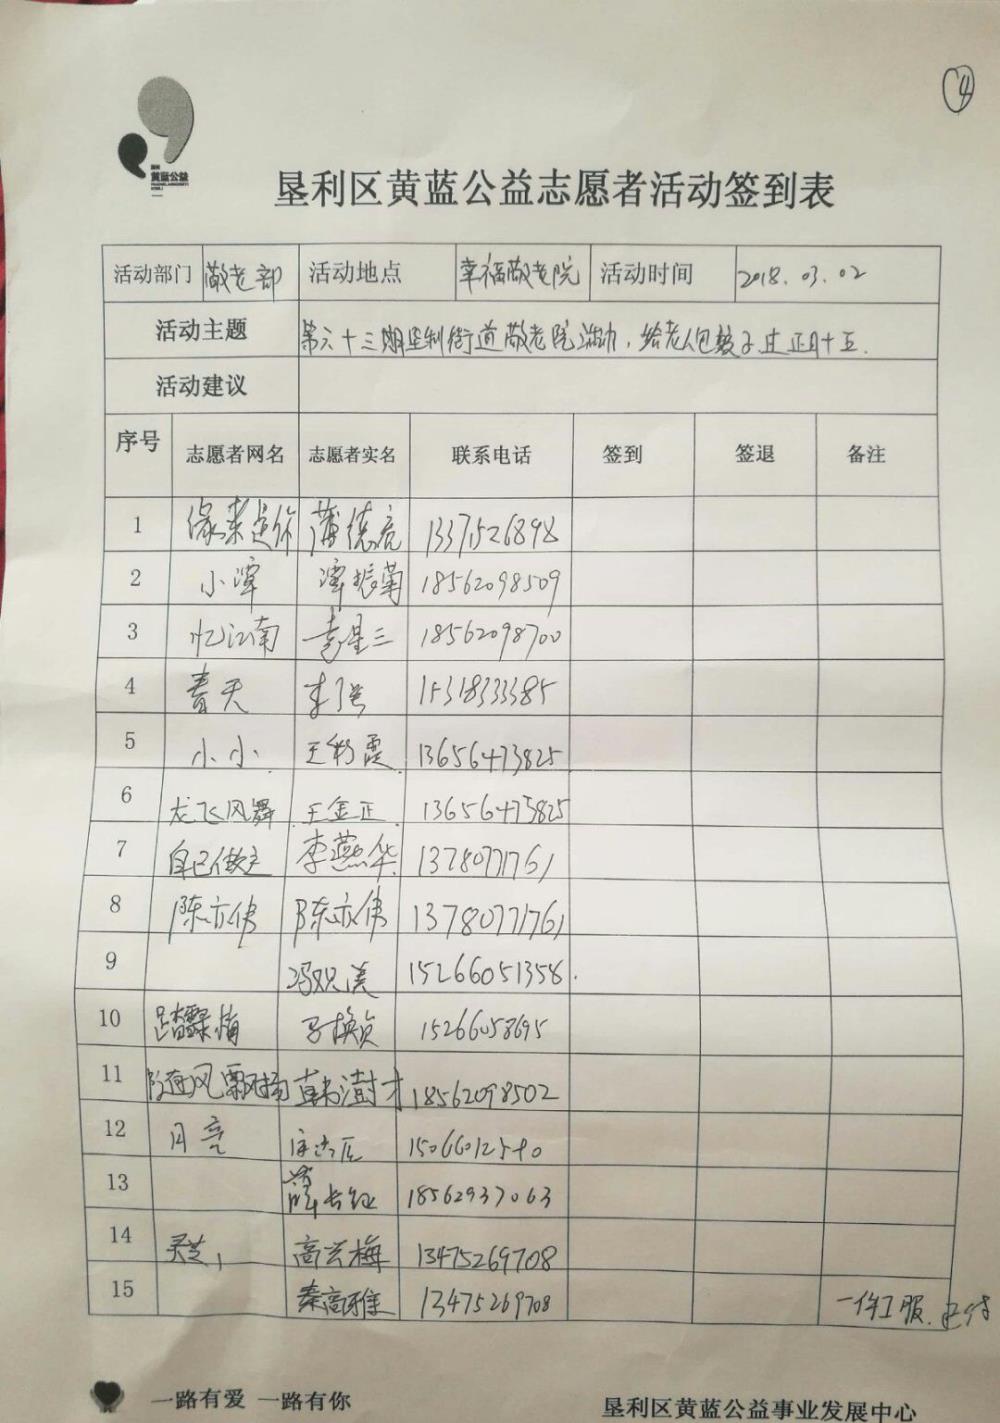 ④
黄蓝公益
垦利区黄蓝公益志愿者活动签到表
活动部门 敬老部 活动地点 幸福敬老院 活动时间 2018.03.02
活动主题 第六十三期垦利街道敬老院活动,给老人包饺子过正月十五.
活动建议
序号 志愿者网名 志愿者实名 联系电话 签到 签退 备注
1 缘来是你 蒲德亮 13371526898
2 小潭 潭振菊 18562098509
3 忆江南 袁星三 18562098700
4 春天 15318333385
5 小小 王彩霞 13656473825
6 龙飞风舞 王金正 13656473825
7 自己做主 李燕华 13780771761
8 陈亦伟 陈亦伟 13780771761
9 冯双美 15266051358
10 踏雪 15266058695
11 随风飘扬 韩澍才 18562098502
12 月亮
13 薛长征 18562937063
14 灵芝 高兰梅 13475269708
15 秦高雅 13475269708 一件工服
一路有爱 一路有你
垦利区黄蓝公益事业发展中心